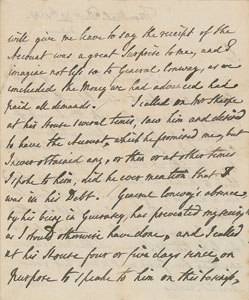 will give me leave to say the receipt of the
Account was a great Surprize to me, and I
imagine not less so to General Conway, as we
concluded the Money we had advanced had
paid all demands. I called on Mr Sharpe
at his House several times, saw him and desired
to have the Account, which he promised me, but
I never obtained any, or then or at other times
I spoke to him, did he ever mention that I
was in his Debt. General Conway's absence
by his being in Guernsey, has prevented my
as I should otherwise have done, and I called
at his House four or five days since, on
Purpose to speake to him on this